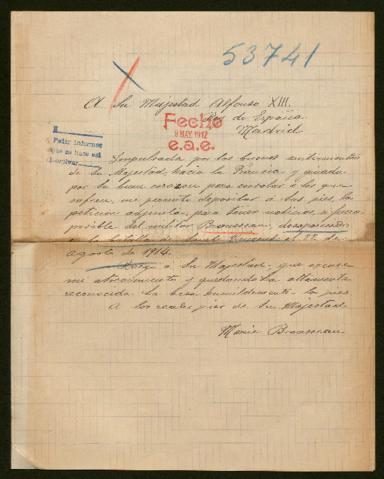 53741
A Su Majestad Alfonso XIII.
Rey de España
Madrid
Fecho
9 MAY. 1917
e.a.e.
Pedir informes
que se hace así
Impulsada por los buenos sentimientos
de Su Majestad hacia la Francia y guiada
por su buen corazon para consolar a los que
sufren, me permito depositar a sus pies, la
peticion adjunta, para tener noticias, si fuera
posible del militar Brousseau, desaparecido
en la batalla de el 22 de
agosto de 1914.
a Su Majestad que excuse
mi atrevimiento y quedandola altamente
reconocida la besa humildemente los pies
A los reales pies de Su Majestad
Marie Brousseau